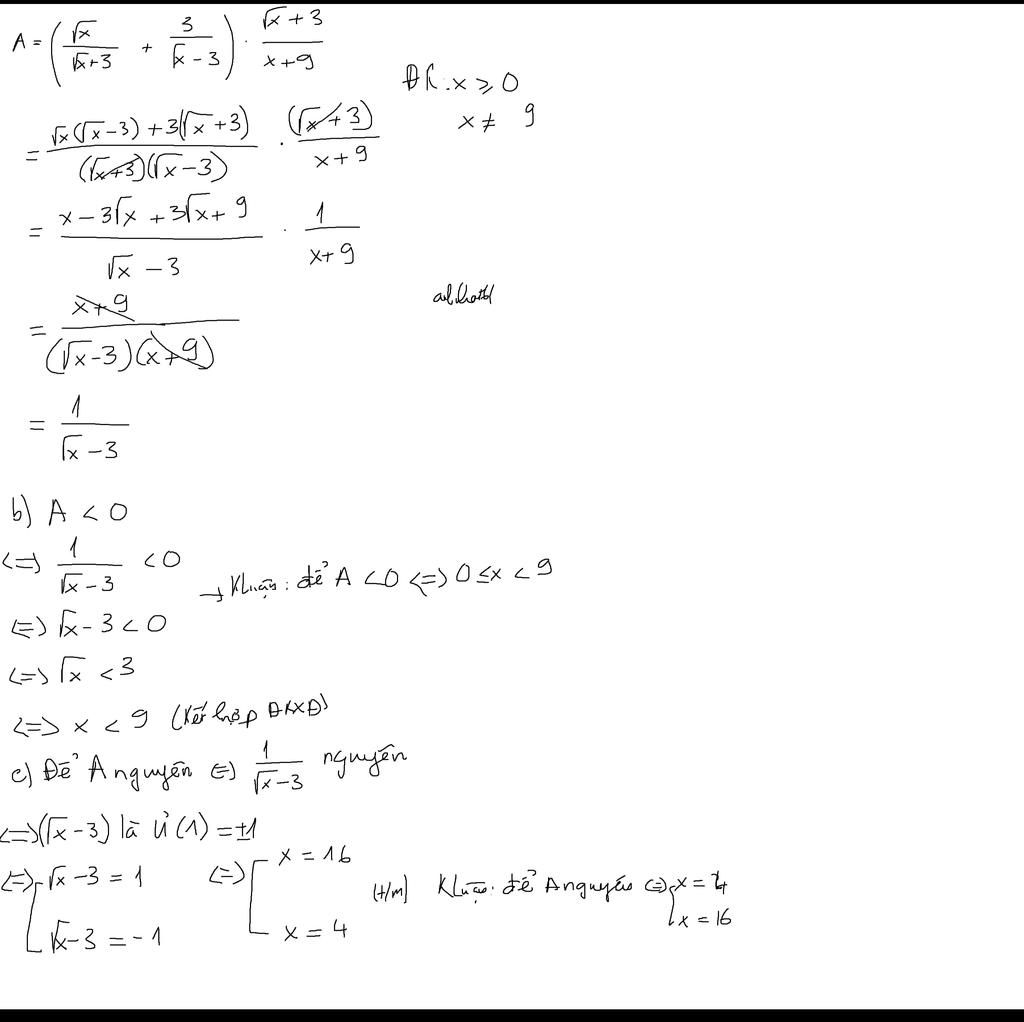 A = (√x/(√x+3) + 3/(√x-3)) · (√x+3)/(x+9)
ĐK: x ≥ 0
x ≠ 9
= (√x(√x-3)+3(√x+3))/((√x+3)(√x-3)) · (√x+3)/(x+9)
= (x-3√x+3√x+9)/(√x-3) · 1/(x+9)
= (x+9)/((√x-3)(x+9))
= 1/(√x-3)
b) A < 0
<=> 1/(√x-3) < 0
→ KLuận: để A < 0 <=> 0 ≤ x < 9
<=> √x - 3 < 0
<=> √x < 3
<=> x < 9 (Kết hợp ĐKXĐ)
c) Để A nguyên <=> 1/(√x-3) nguyên
<=> (√x-3) là Ư(1) = ±1
<=> [ √x-3 = 1 <=> [ x = 16
√x-3 = -1 x = 4
(t/m) KLuận: để A nguyên <=> x = 4
x = 16